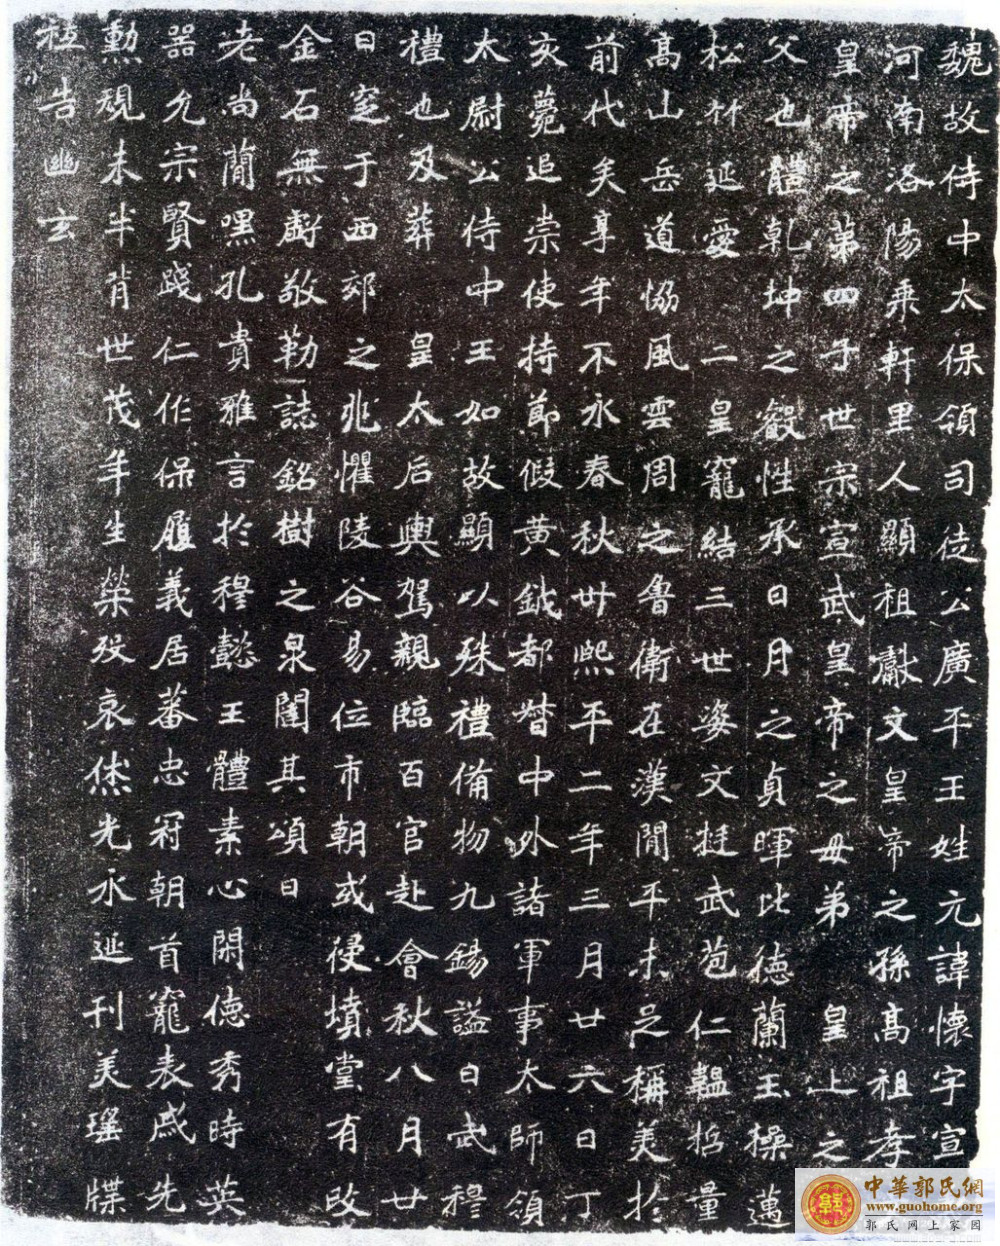 魏故侍中太保領司徒公廣平王姓元諱懷字宣
河南洛陽乘軒里人顯祖獻文皇帝之孫高祖孝
皇帝之第四子世宗宣武皇帝之母弟皇上之
父也體乾坤之叡性承日月之貞暉比德蘭玉操邁
松竹延愛二皇寵結三世姿文挺武苞仁韞哲量
高山岳道協風雲周之魯衛在漢間平未足稱美於
前代矣享年不永春秋卅熙平二年三月廿六日丁
亥薨追崇使持節假黃鉞都督中外諸軍事太師領
太尉公侍中王如故顯以殊禮備物九錫謚曰武穆
禮也及葬皇太后輿駕親臨百官赴會秋八月廿
日窆于西郊之兆懼陵谷易位市朝或侵墳堂有改
金石無虧敬勒誌銘樹之泉闥其頌曰
老尚簡嘿孔貴雅言於穆懿王體素心閑德秀時英
器允宗賢踐仁作保履義居蕃忠冠朝首寵表戚先
勳規未半背世茂年生榮歿哀休光永延刊美瑤牒
祗告幽玄
中華郭氏網
www.guohome.org
郭氏网上家园